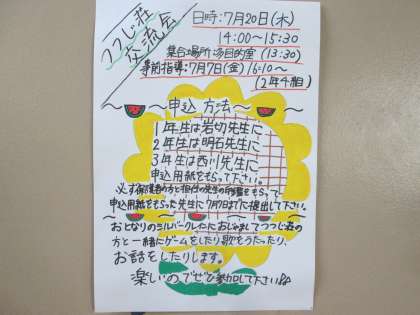 つつじ荘
交流会
日時:7月20日(木)
14:00~15:30
集合場所:多目的室(13:30)
事前指導:7月7日(金)16:10~
(2年4組)
~申込方法~
1年生は岩切先生に
2年生は明石先生に
3年生は西川先生に
申込用紙をもらって下さい。
必ず保護者の方と担任の先生の印鑑をもらって
申込用紙をもらった先生に7月7日までに提出して下さい。
おとなりのシルバークレインにおじゃましてつつじ荘の
方と一緒にゲームをしたり歌をうたったり、
お話をしたりします。
楽しいのでぜひ参加して下さい